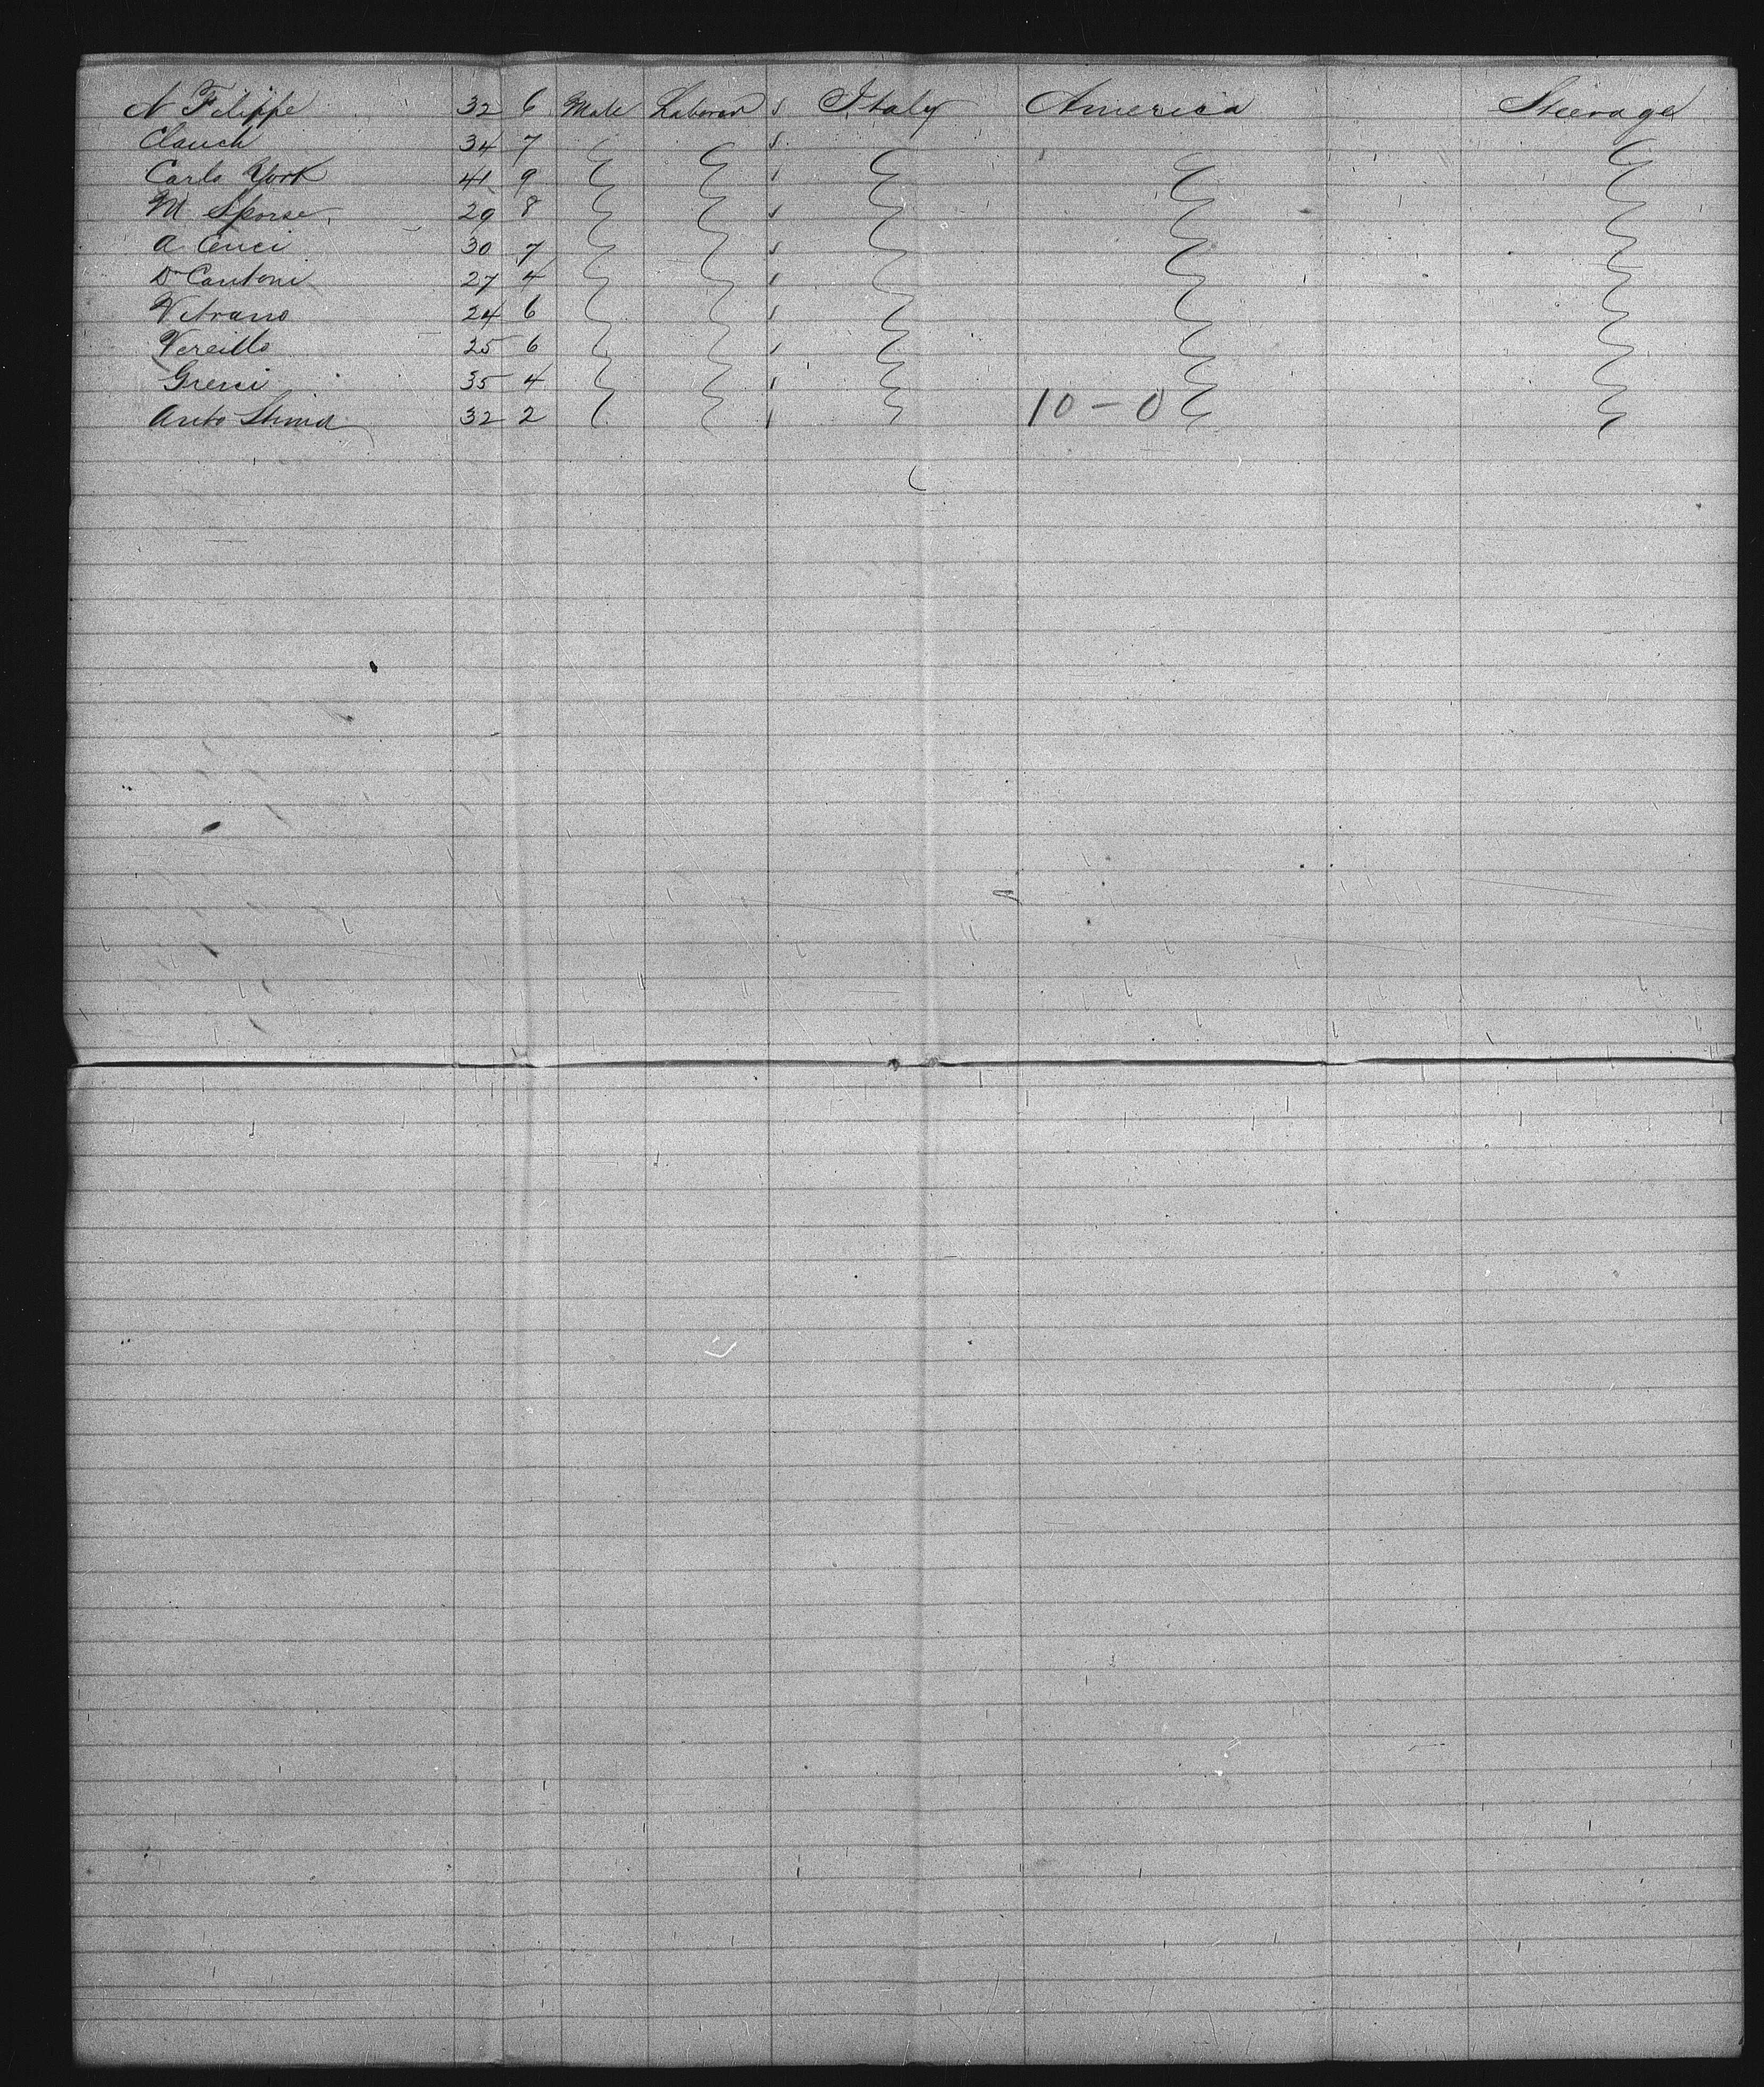 N Filippe 32 6 Male Laborer s Italy America Steerage
Clauch 34 7 s
Carlo York 41 9 s
M 29 8 s
A Cenci 30 7 s
D Cantoni 27 4 s
Vitrano 24 6 s
Vercillo 25 6 s
35 4 s
Anto 32 2 s 10-0